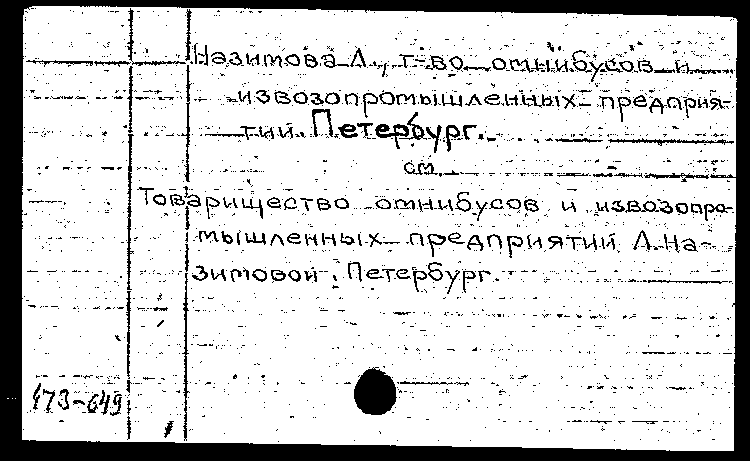 Назимова Л., т-во омнибусов и
извозопромышленных предприя-
тий. Петербург.
см.
Товарищество омнибусов и извозопро-
мышленных предприятий Л. На-
зимовой. Петербург.
473-649